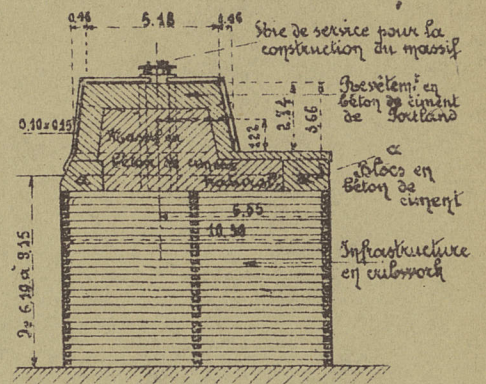 0,46 5.18 0,46
Voie de service pour la
construction du massif
Revêtemt en
béton de ciment
de Portland
0,10 x 0,15
2.74
3,66
1.22
Massif en
béton de ciment
a
a
Blocs en
béton de
ciment
6.55
10.90
De 6,10 à 9,15
Infrastructure
en cribwork